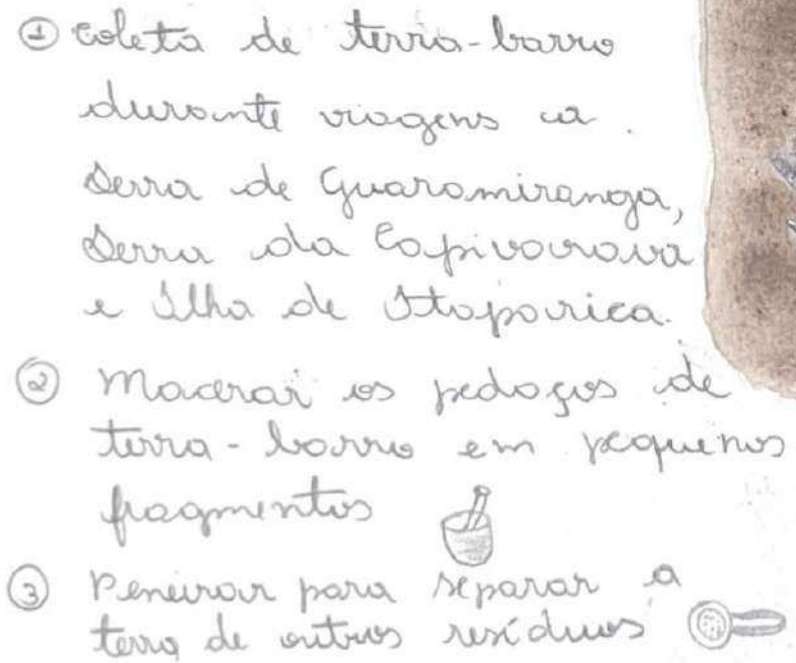 ① Coleta de terra-barro
durante viagens a
Serra de Guaramiranga,
Serra da Capivarava
e Ilha de Itaparica.
② Macerar os pedaços de
terra-barro em pequenos
fragmentos
③ Peneirar para separar a
terra de outros resíduos